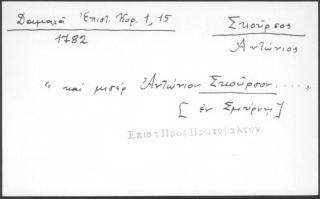 Δαμαλᾶ Ἐπιστ. Κορ. 1, 15
1782
Σκοῦρσος
Ἀντώνιος
" καί μισέρ Ἀντώνιον Σκοῦρσον.... "
[ ἐν Σμύρνῃ ]
Επιστ Προς Πρωτοψαλτην